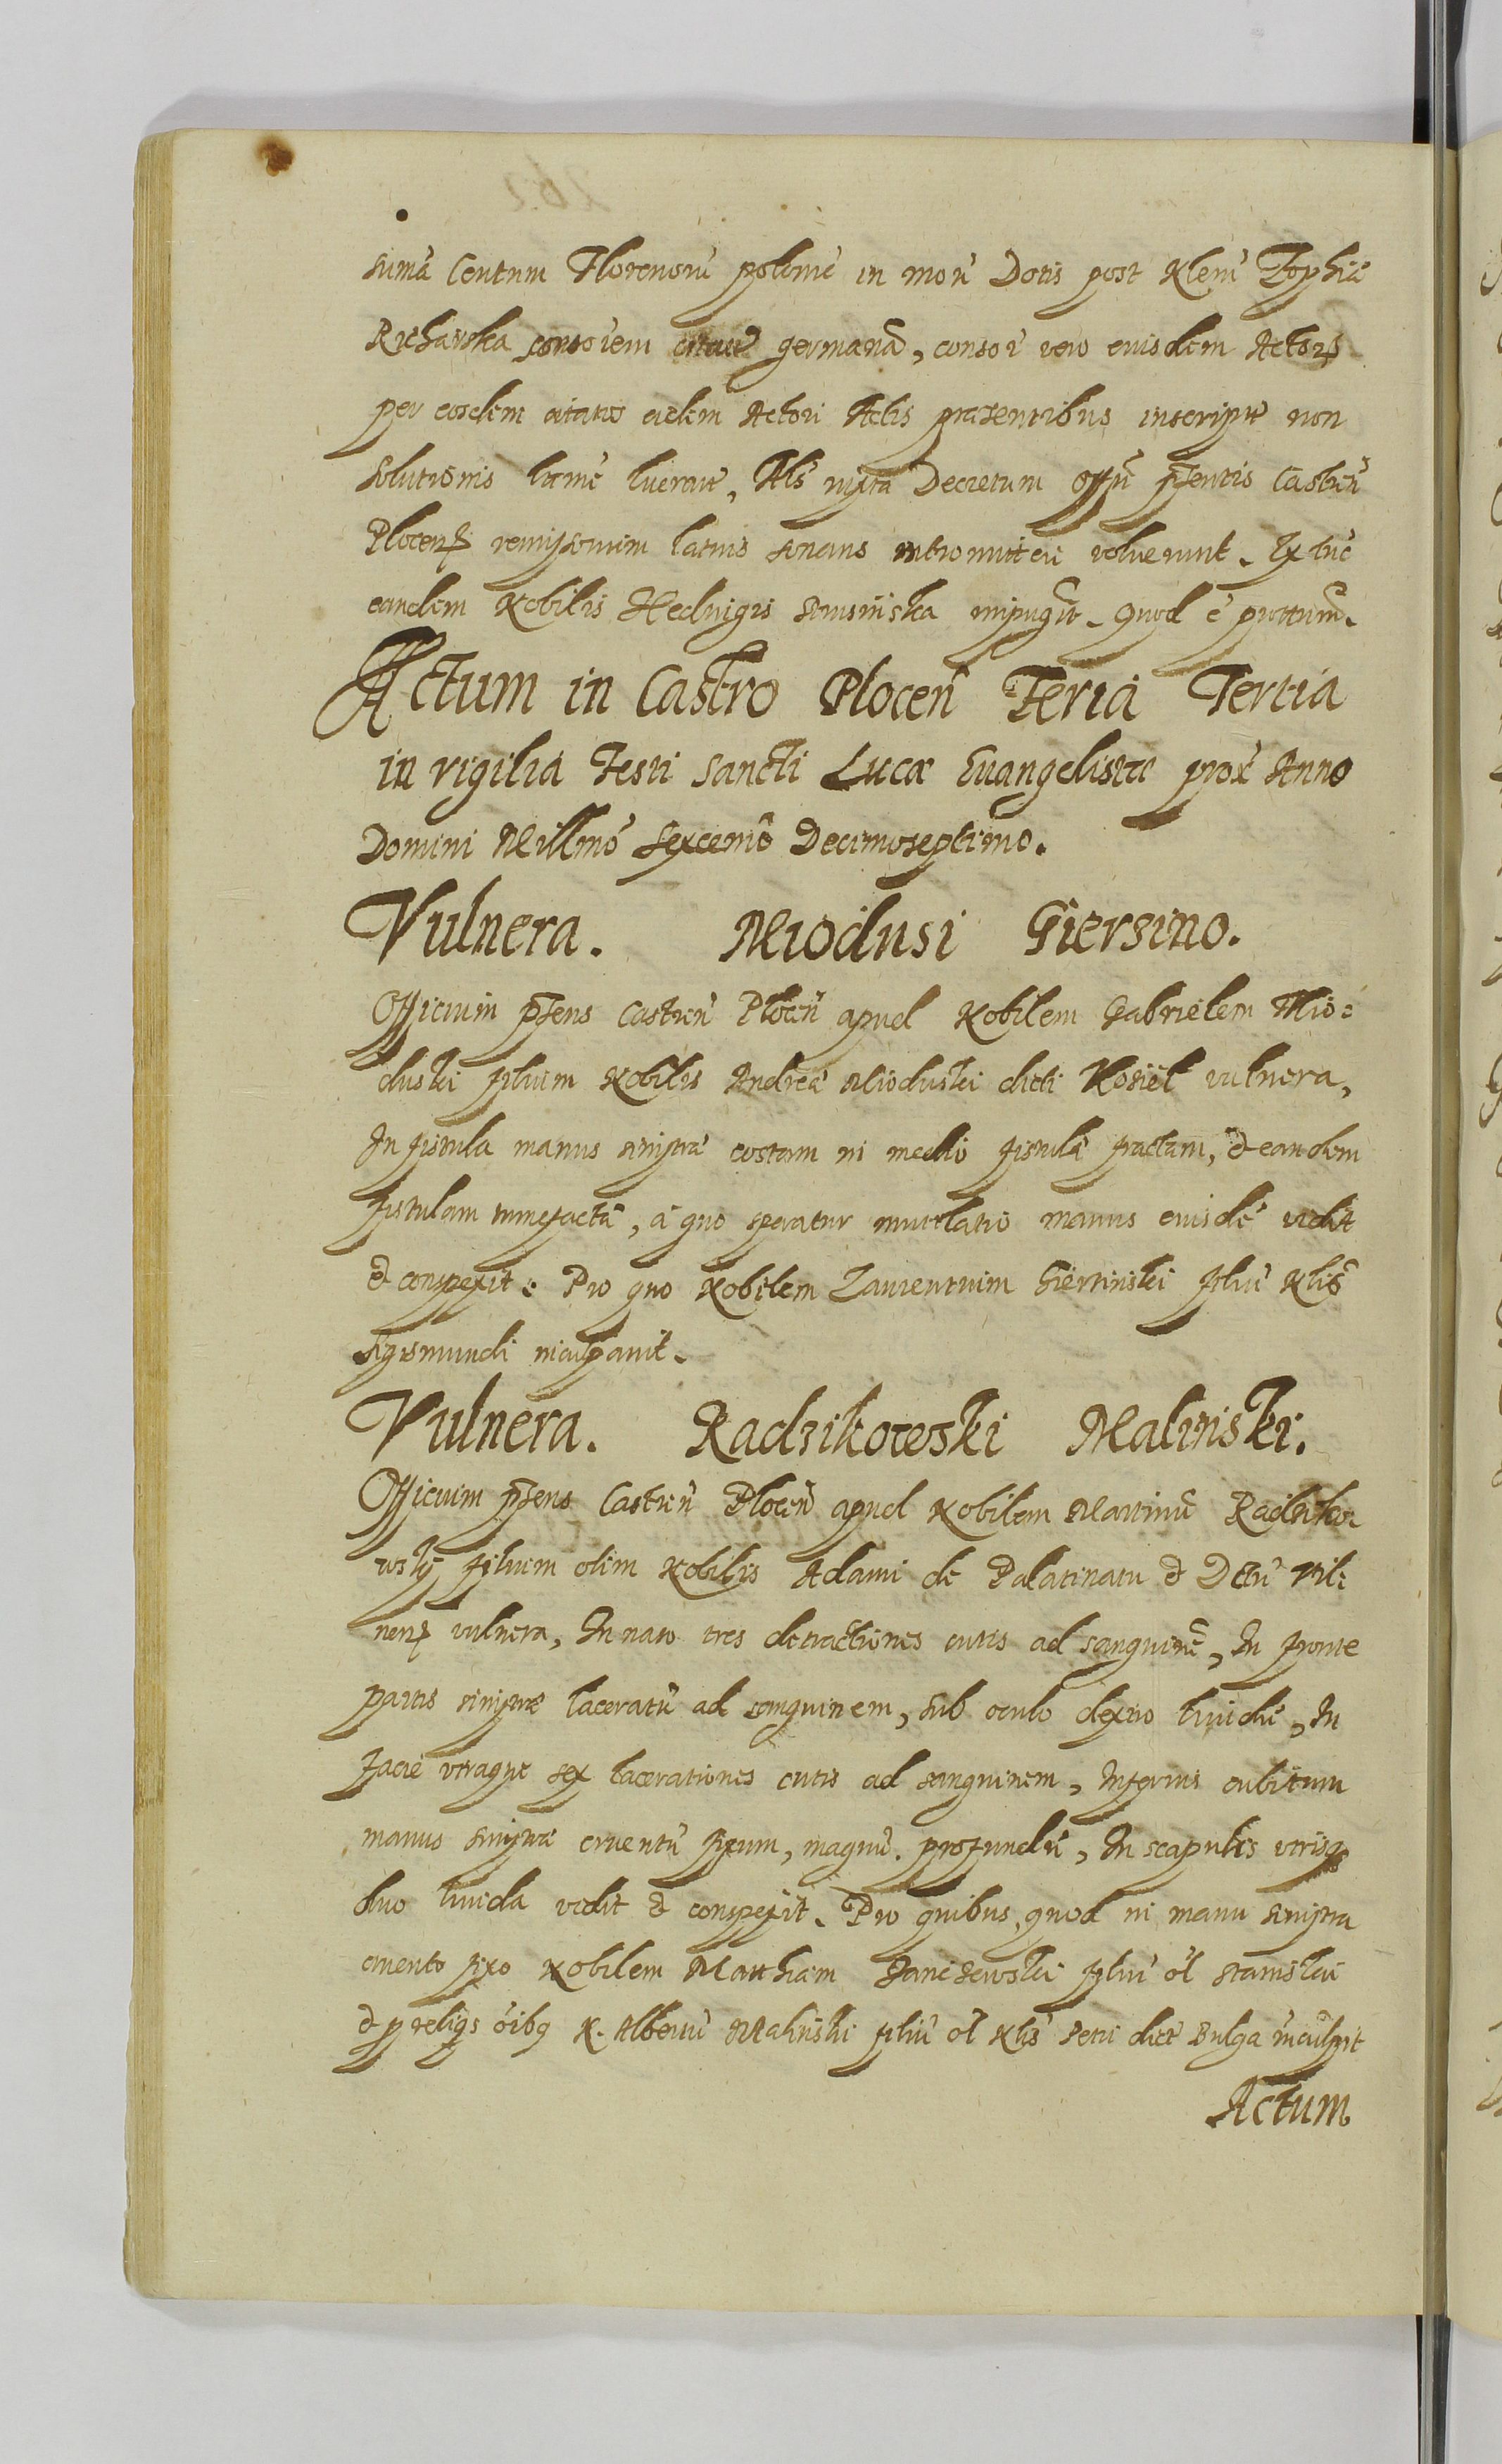 sumã Centum Florenorũ polonic in morẽ Dotis post Nlem̃ Zophiã
Richarska sororem germanã, consor̃ vero eiusdem Actoris
per eosdem citatos eidem Actori Actis præsentibus inscript non
solutionis luerant, Als̃ iuxta Decretum Offĩi p̃sentis Castreñ
Plocen̄ remissorium latius sonans intromittere voluerunt. Ex tũc
eandem Nobilis Hedvigis impugũit. Quod ẽ
Actum in Castro Ploceñ Feria Tertia
in vigilia Festi Sancti Lucæ Euangelistæ prox̃ Anno
Domini Millm̃o Sexcem̃o Decimoseptimo.
Vulnera. Miodusi Giersino.
Officium p̃sens Castreñ Ploceñ apud Nobilem Gabrielem Mio:
duski filium Nobilis Andreæ Mioduski dicti Kosiel vulnera,
In fistula manus sinistræ costam in medio fistulæ fractam, & eandem
fistulam tumefactã, à quo speratur mutilatio manus eiusdẽ vidit
& conspexit: Pro quo Nobilem Laurentium Giersinski filiũ Nlis̃
Sigismundi inculpauit.
Vulnera. Radzikowski Malinski.
Officium p̃sens Castreñ Ploceñ apud Nobilem Martinũ Radziko
wskij filium olim Nobilis Adami de Palatinatu & Dctũ Vil:
nen̄ vulnera, In naso tres detractiones cutis ad sanguinẽ, In fronte
partis sinistræ laceratũ ad sanguinem, sub oculo dextro liuidũ, In
facie vtraque sex lacerationes cutis ad sanguinem, Inferius cubitum
manus sinistræ cruentũ fixum, magnũ. profundũ, In scapulis vtrisq;
duo liuida vidit & conspexit. Pro quibus, quod in manu sinistra
cruento fixo Nobilem Matthiam Janczewski filiũ ol̃ Stanislai
& p reliqs õibq N. Albertũ Malinski filiũ ol̃ Nlis̃ Petri dict Bulga inculpit
Actum